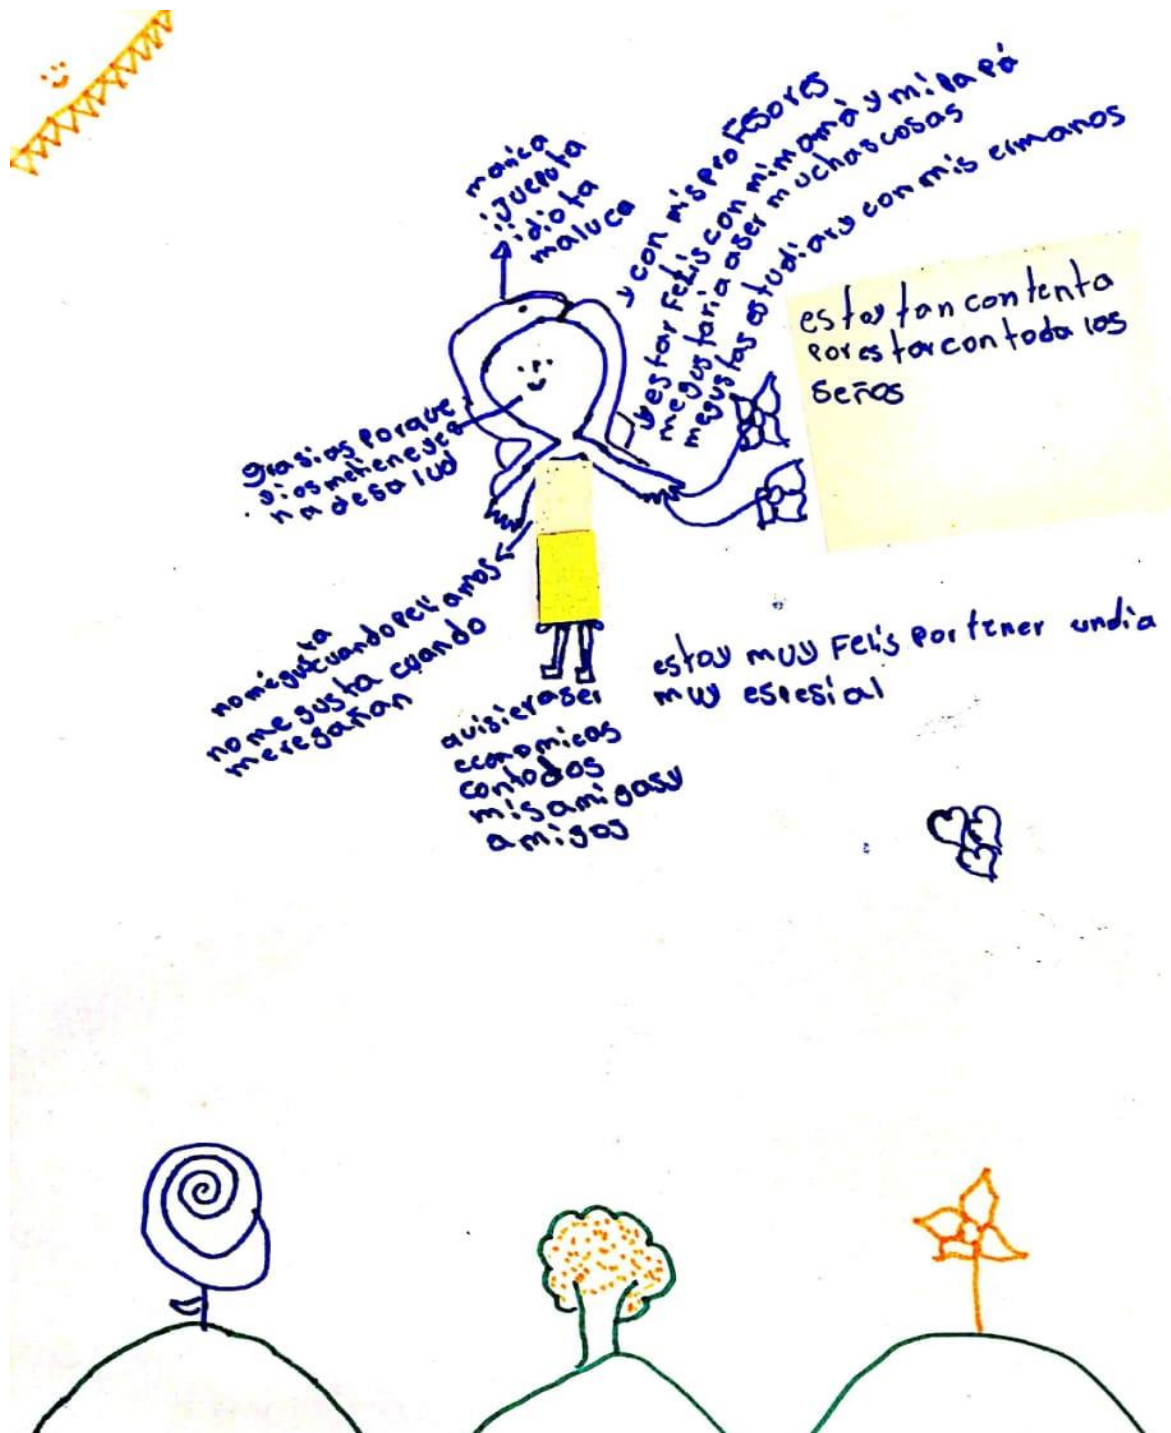 marica
ijueputa
idiota
maluca
con mis profesores
estar Felis con mi mamá y mi papá
me gustaria aser muchas cosas
me gustas estudiar y con mis ermanos
estoy tan contenta
por estar con toda los
señas
grasias porque
dios me
na de salud
no me gusta cuando peliamos
no me gusta cuando
me regañan
quisiera ser
economicas
con todos
mis amigas y
amigos
estoy muy Felis por tener un dia
muy espesial